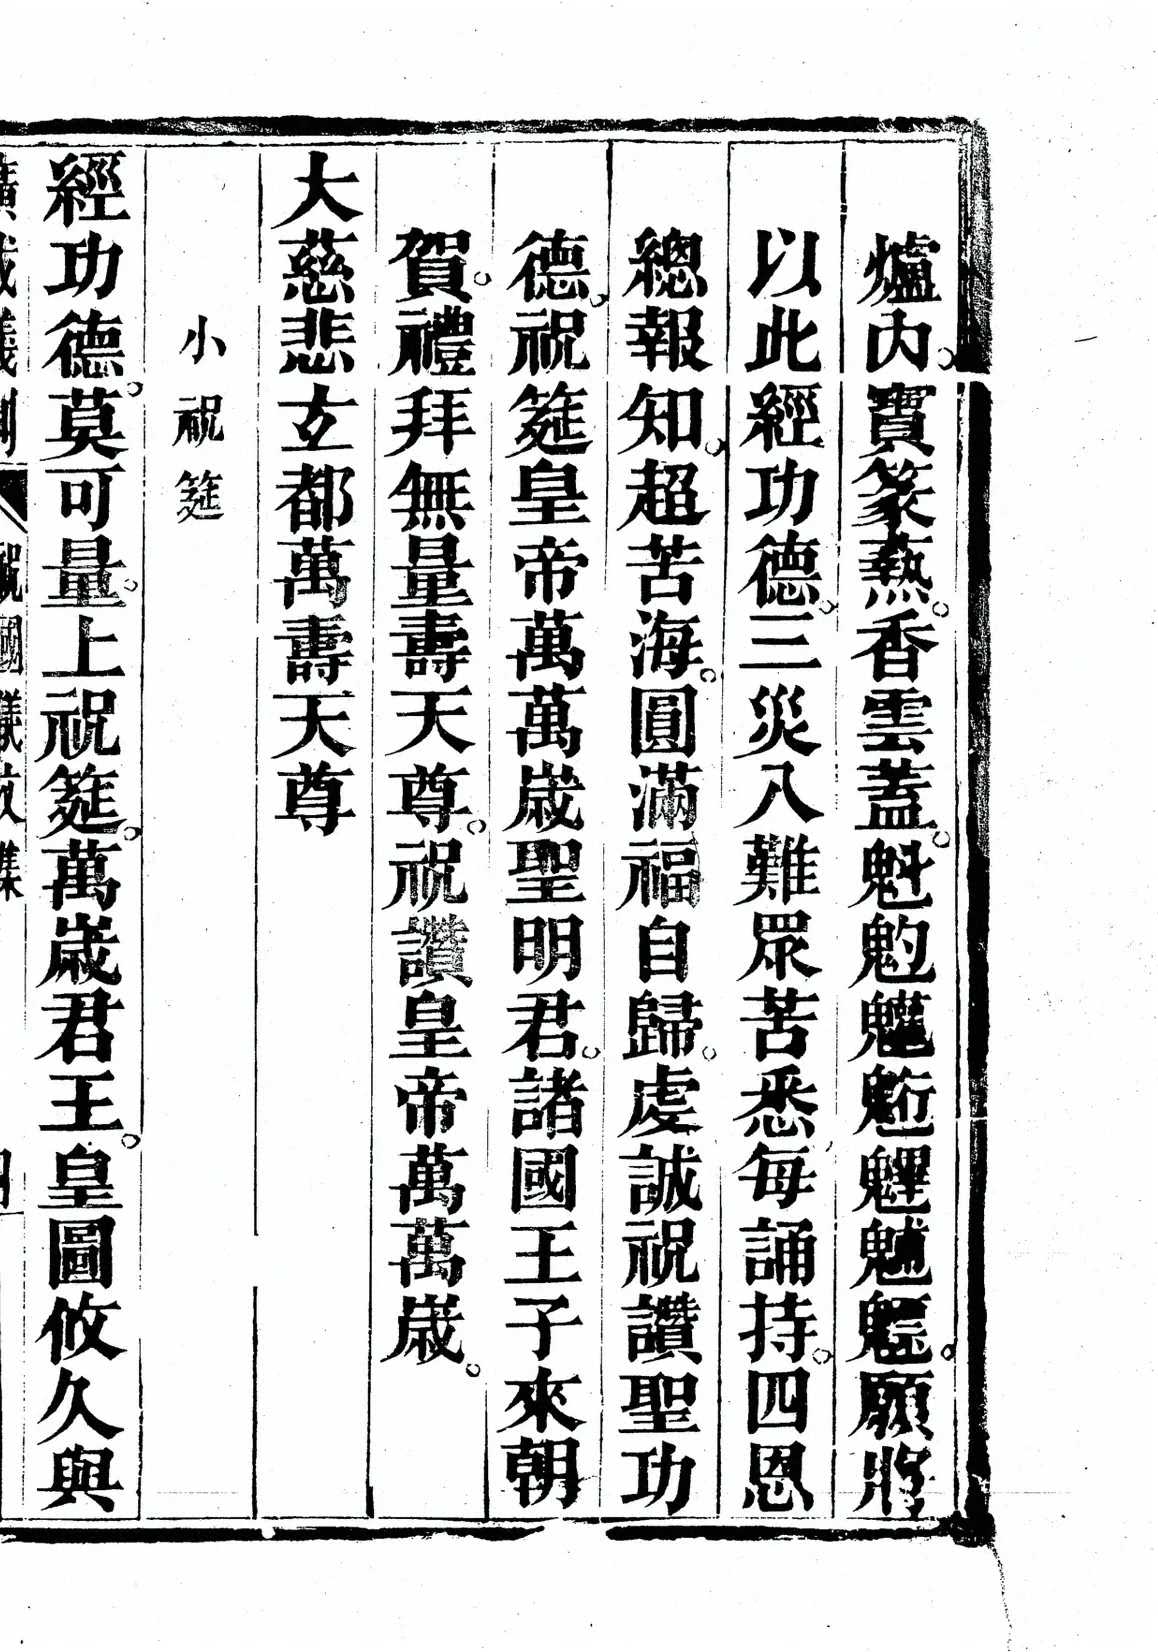 爐內。寶篆爇。香雲蓋。魁𩲃䰢魓䰨魒魕願將
以此經功德。三災八難眾苦悉。每誦持。四恩
總報知。超苦海。圓滿福自歸。虔誠祝讚聖功
德。祝筵皇帝萬萬歲聖明君。諸國王子來朝
賀。禮拜無量壽天尊。祝讚皇帝萬萬歲。
大慈悲玄都萬壽天尊
小祝筵
經功德。莫可量。上祝筵。萬歲君王。皇圖攸久與